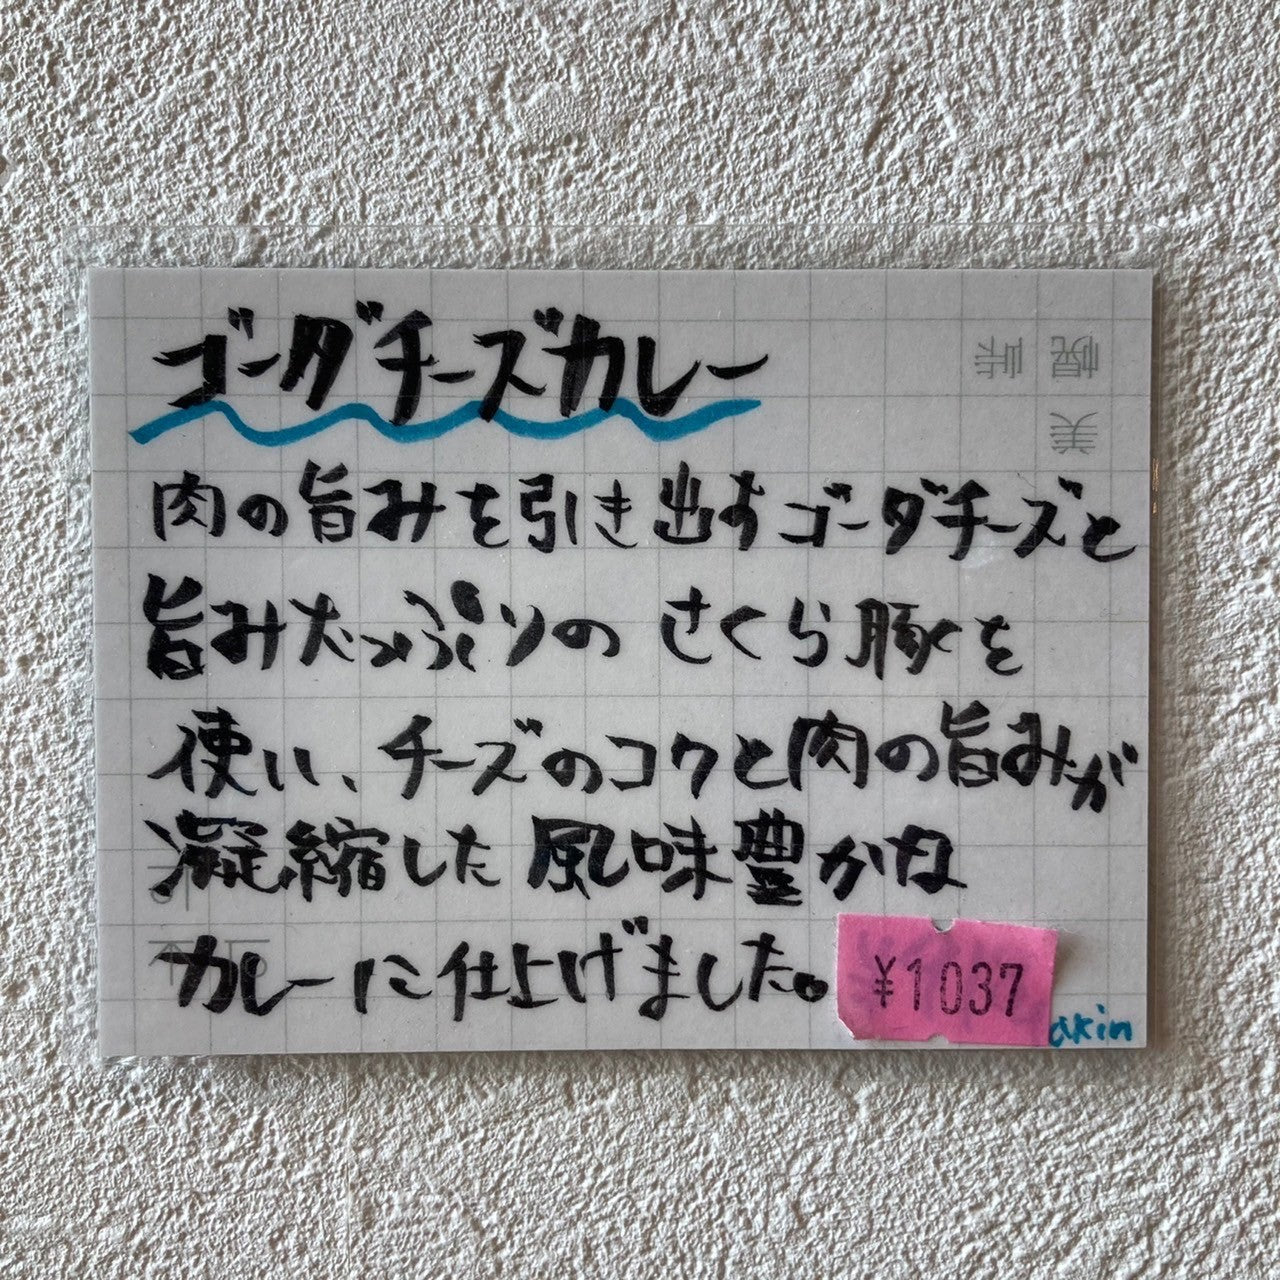 ゴーダチーズカレー
肉の旨みを引き出すゴーダチーズと
旨みたっぷりのさくら豚を
使い、チーズのコクと肉の旨みが
凝縮した風味豊かな
カレーに仕上げました。
¥1037
akin